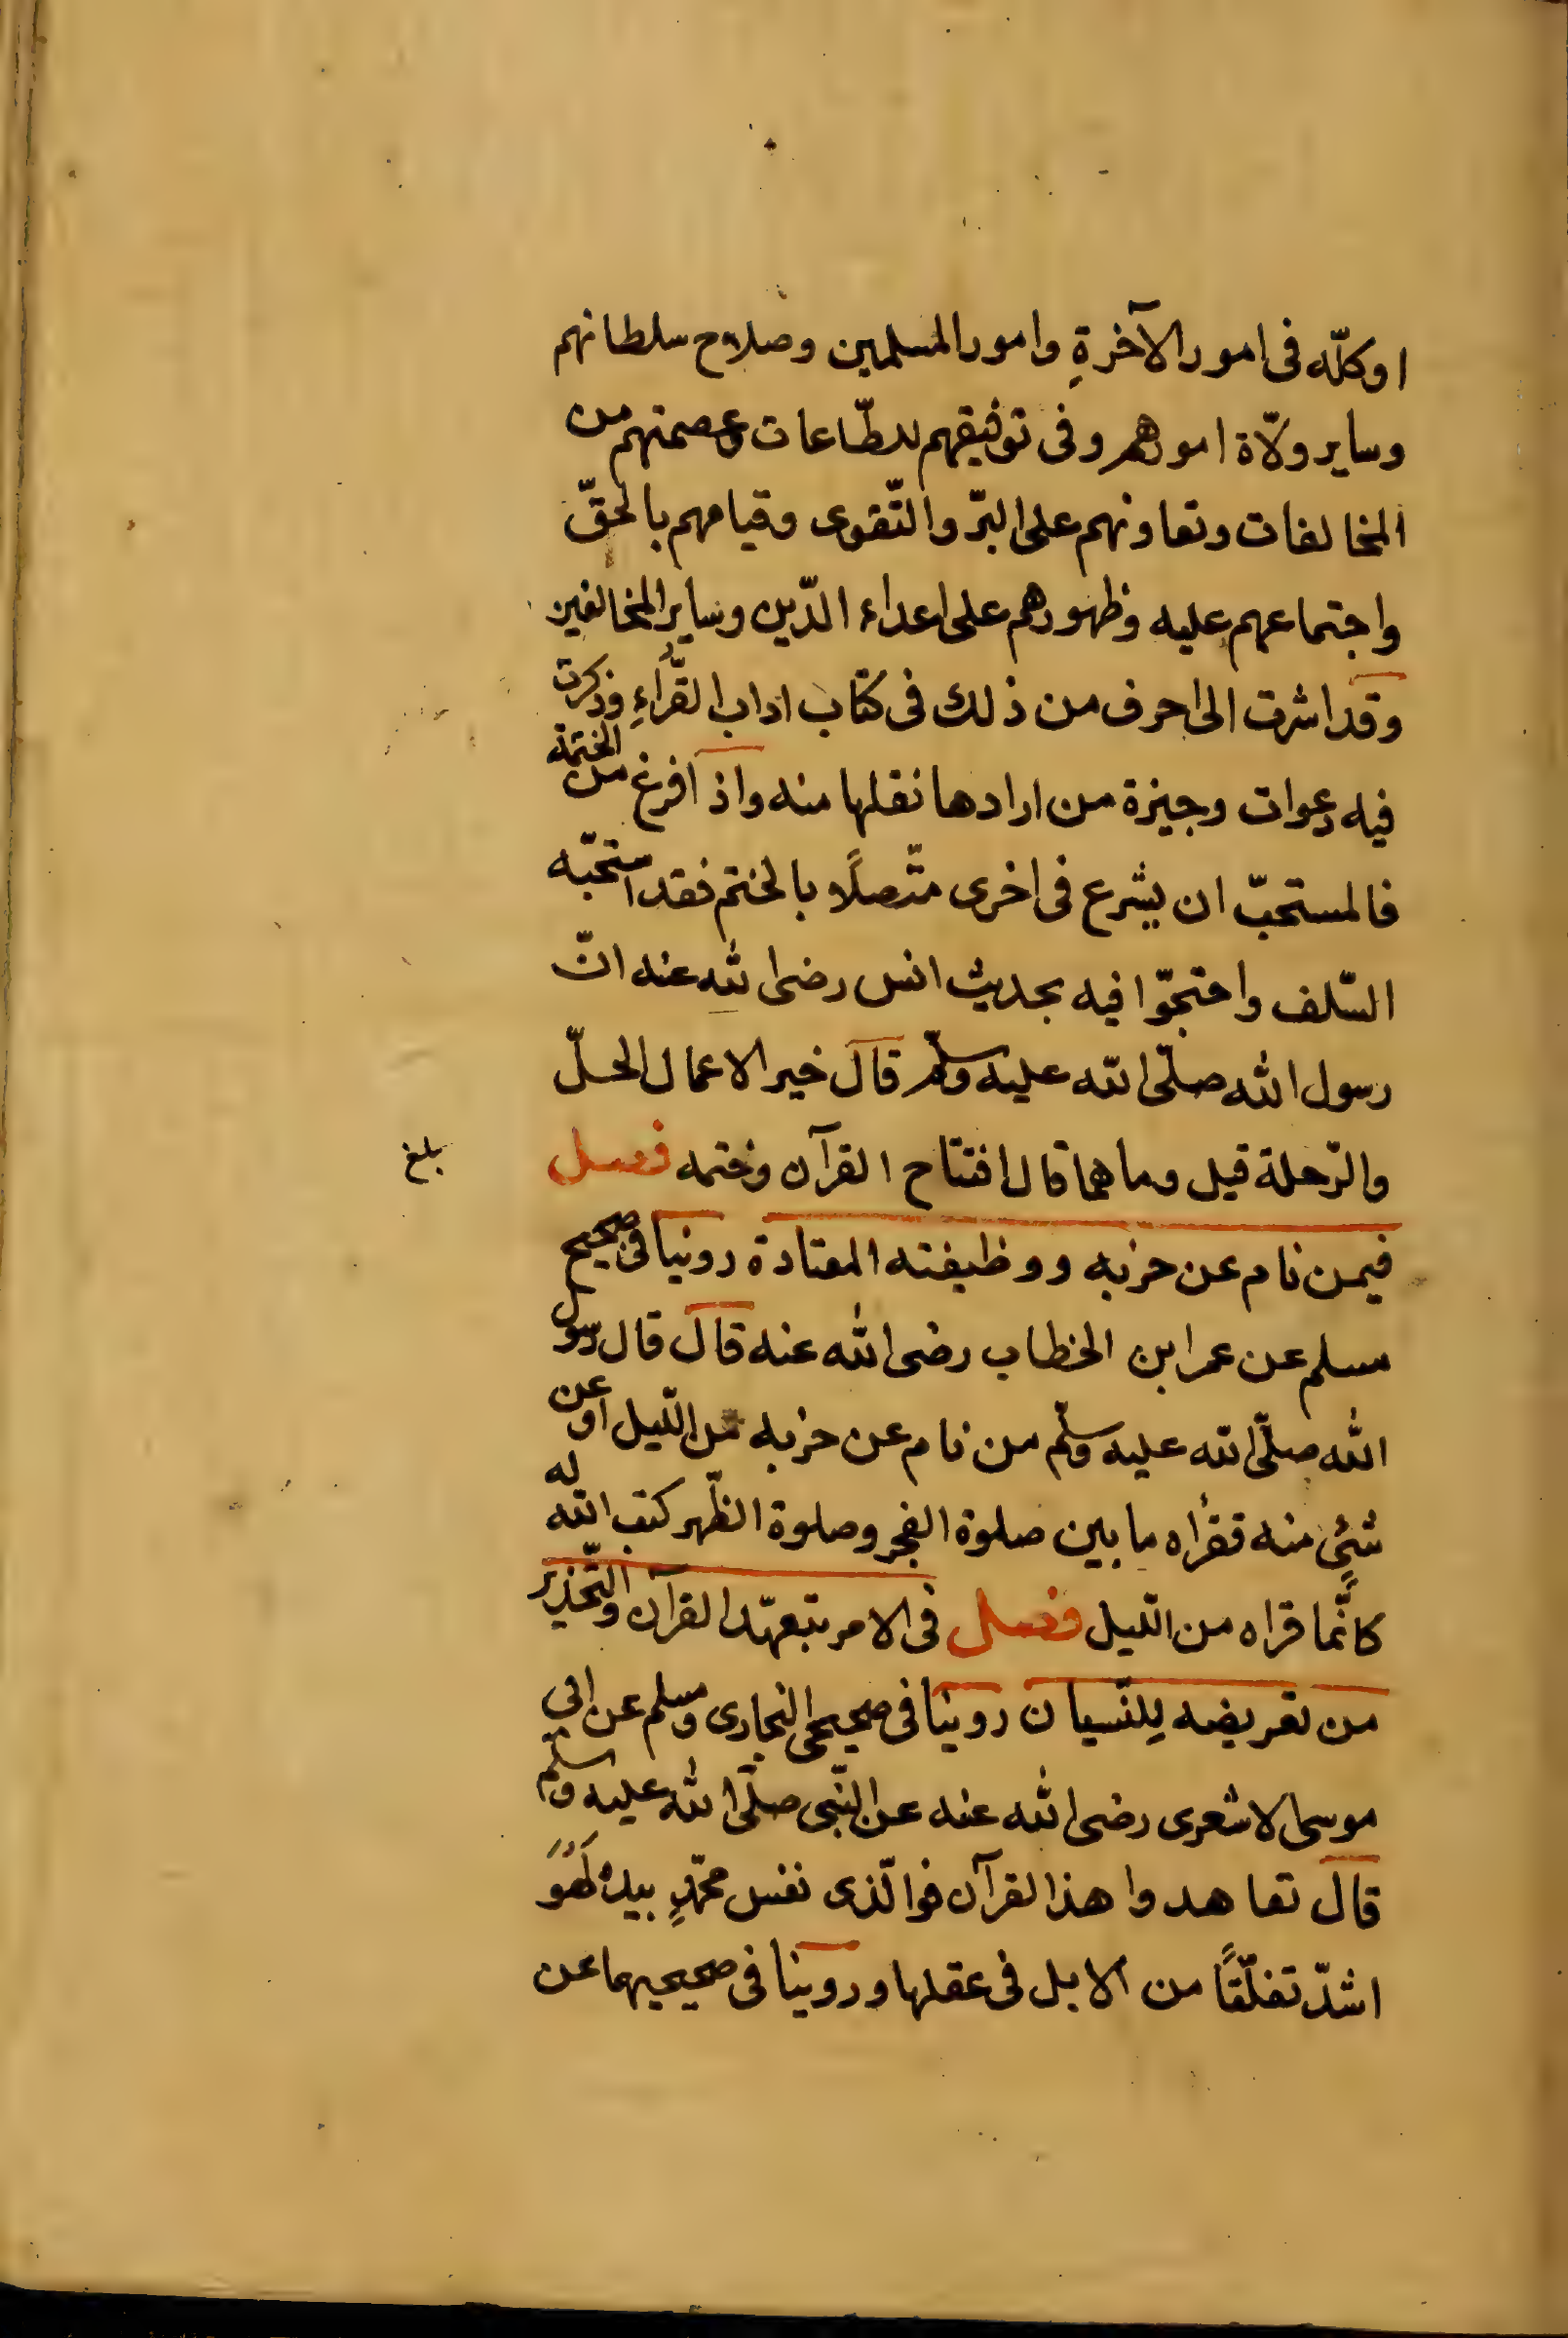 او كلّه فى امور الآخرةِ وامور المسلمين وصلاح سلطانهم
وساير ولّاة امورهم وفى توفيقهم للطّاعات وعصمتهم من
المخالفات وتعاونهم على البرّ والتّقوى وقيامهم بالحقّ
واجتماعهم عليه وظهورهم على اعداء الدّين وساير المخالفين
وقد اشرت الى احرف من ذلك فى كتاب اداب القُرّاءِ وذكرت
فيه دعوات وجيزة من ارادها نقلها منه واذ افرغ من الختمة
فالمستحبّ ان يشرع فى اخرى متّصلًا بالختم فقد استحبّه
السّلف واحتجّوا فيه بحديث انس رضى الله عنه انّ
رسول الله صلّى الله عليه وسلّم قال خير الاعمال الحلّ
والرّحلة قيل وما هما قال افتتاح القرآن وختمه فصل
بلغ
فيمن نام عن حزبه ووظيفته المعتادة روينا فى صحيح
مسلم عن عمر ابن الخطاب رضى الله عنه قال قال رسول
الله صلّى الله عليه وسلّم من نام عن حزبه من اللّيل او عن
شئٍ منه فقرأه ما بين صلوة الفجر وصلوة الظّهر كتب الله له
كانّما قراه من اللّيل فصل فى الامر بتعهّد القرآن والتّحذير
من تعريضه لِلنّسيان روينا فى صحيحى البخارى ومسلم عن ابى
موسى الاشعرى رضى الله عنه عن النّبى صلّى الله عليه وسلّم
قال تعاهدوا هذا القرآن فوالّذى نفس محمّدٍ بيده لَهُوَ
اشدّ تفلّتًا من الابل فى عقلها وروينا فى صحيحيهما عن